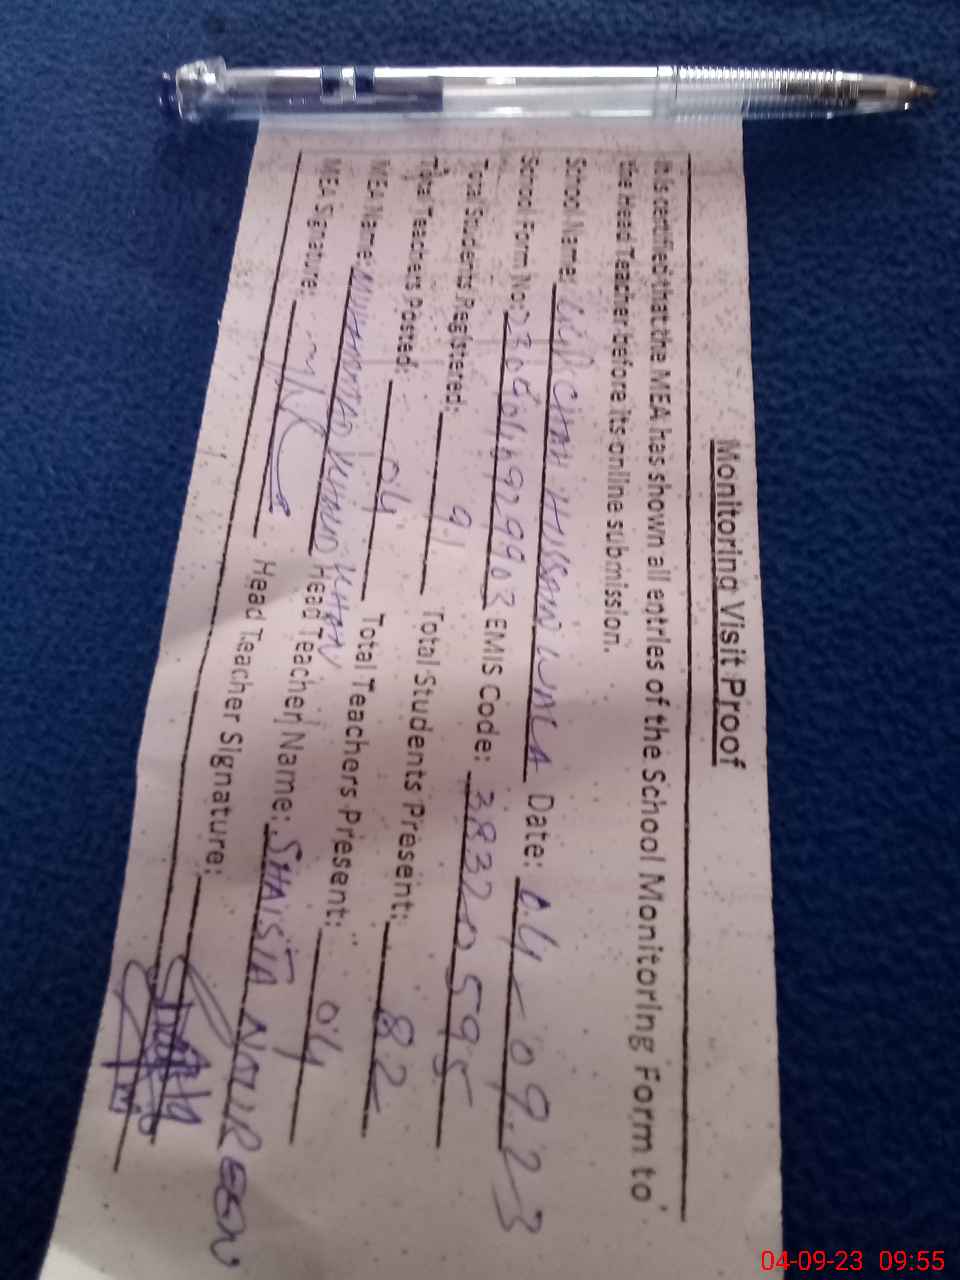 Monitoring Visit Proof
It is certified that the MEA has shown all entries of the School Monitoring Form to
the Head Teacher before its online submission.
School Name: CHAH HUSSAIN WALA Date: 04-09-23
School Form No: EMIS Code: 38320595
Total Students Registered: 91 Total Students Present: 82
Total Teachers Posted: 04 Total Teachers Present: 04
MEA Name: MUHAMMAD KHAN Head Teacher Name: SHAISTA NOUREEN
MEA Signature: Head Teacher Signature:
04-09-23 09:55